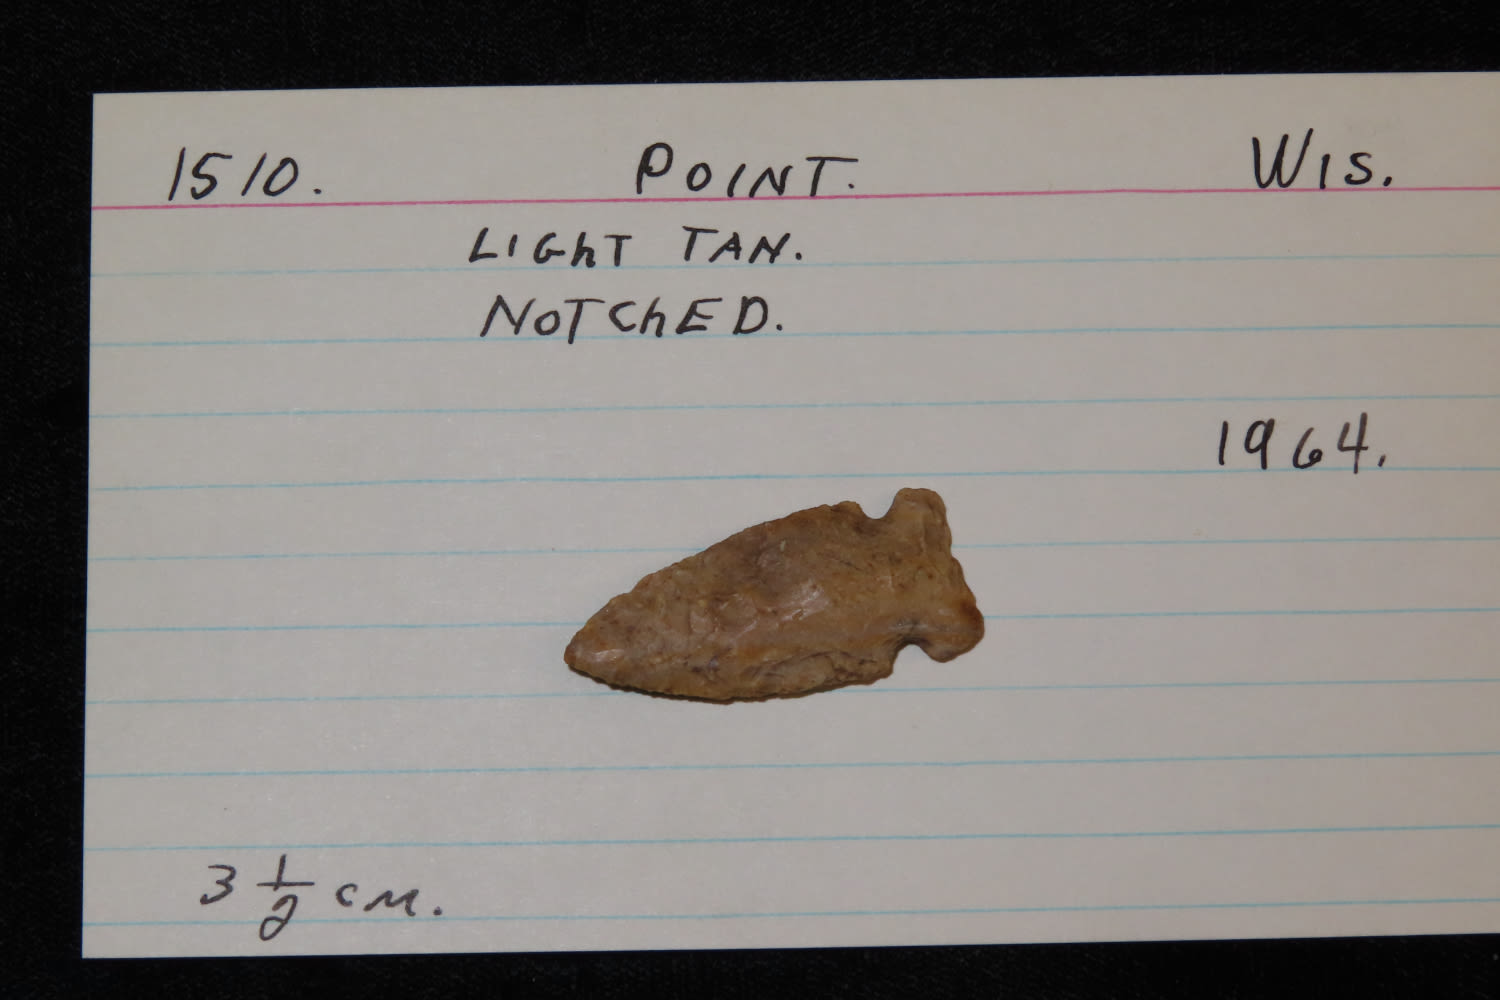 1510. POINT. WIS.
LIGhT TAN.
NOTChED.
1964.
3 1/2 cm.